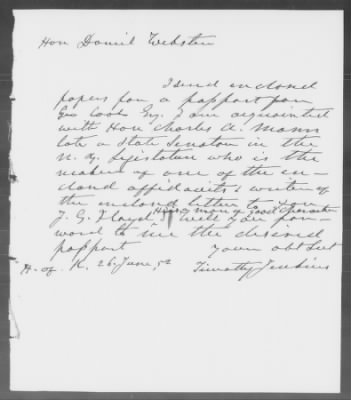 Hon Daniel Webster
I send enclosed
papers for a passport for
Geo Cook Esq. I am acquainted
with Hon Charles A. Mann
late a State Senator in the
N. Y. Legislature who is the
maker of one of the en-
closed affidavits & writer of
the enclosed letter to Hon
He is a man of good character
J. G. Floyd. Will you for-
ward to me the desired
passport
Your obt Svt
H. of R. 26 June, 52
Timothy Jenkins